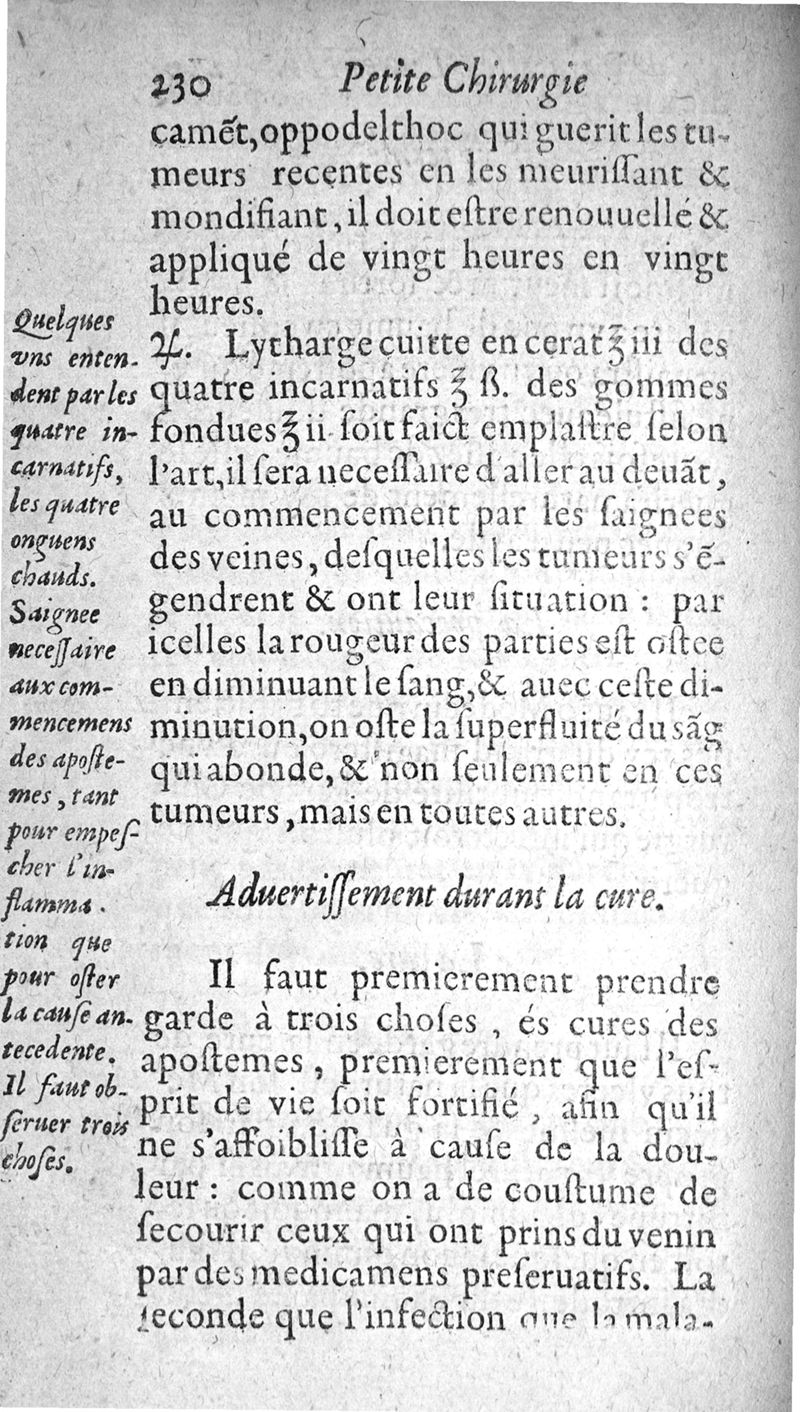 230 Petite Chirurgie
camẽt,oppodelthoc qui guerit les tu-
meurs recentes en les meuriſſant &
mondifiant, il doit eſtre renouuellé &
appliqué de vingt heures en vingt
heures.
♃. Lytharge cuitte en cerat ℥ iii des
quatre incarnatifs ℥ ß. des gommes
fondues ℥ ii ſoit faict emplaſtre ſelon
l'art, il ſera neceſſaire d'aller au deuãt,
au commencement par les ſaignees
des veines, deſquelles les tumeurs s'ẽ-
gendrent & ont leur ſituation : par
icelles la rougeur des parties eſt oſtee
en diminuant le ſang, & auec ceſte di-
minution, on oſte la ſuperfluité du sãg
qui abonde, & non ſeulement en ces
tumeurs, mais en toutes autres.
Quelques
vns enten-
dent par les
quatre in-
carnatifs,
les quatre
onguens
chauds.
Saignee
neceſſaire
aux com-
mencemens
des apoſte-
mes, tant
pour empeſ-
cher l'in-
flamma.
tion que
pour oſter
la cauſe an-
tecedente.
Il faut ob-
ſeruer trois
choſes.
Aduertiſſement durant la cure.
Il faut premierement prendre
garde à trois choſes, és cures des
apoſtemes, premierement que l'eſ-
prit de vie ſoit fortifié, afin qu'il
ne s'affoibliſſe à cauſe de la dou-
leur : comme on a de couſtume de
ſecourir ceux qui ont prins du venin
par des medicamens preſeruatifs. La
ſeconde que l'infection que la mala-